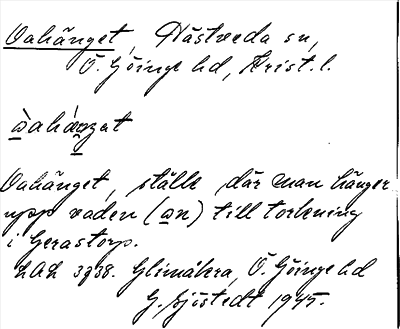 Vahänget, Hästveda sn,
Ö. Göinge hd, Krist. l.
Vahänget, ställe där man hänger
upp vaden (an) till torkning
i Gerastorp.
LAL 3738. Glimåkra, Ö. Göinge hd
G. Sjöstedt 1945.